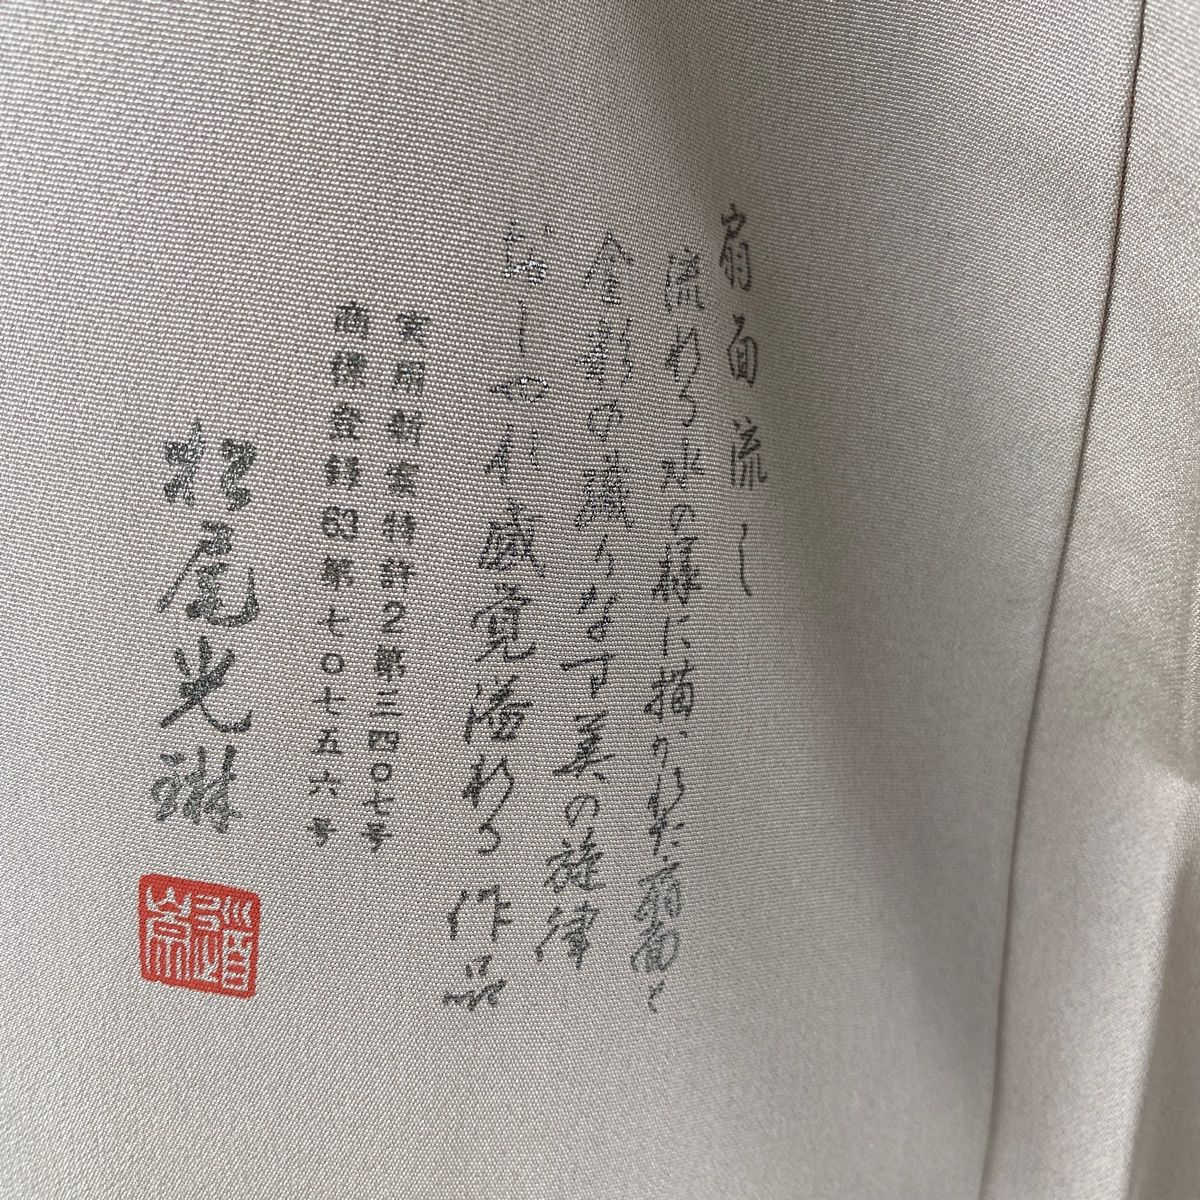 扇面流し
流れる水の様に描かれた扇面と
金彩の織りなす美の旋律
おしゃれ感覚溢れる作品
実用新案特許2第三四〇七号
商標登録63第七〇七五六号
松尾光琳